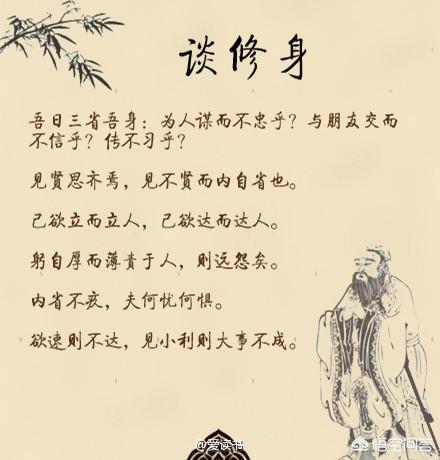 谈修身
吾日三省吾身：为人谋而不忠乎？与朋友交而
不信乎？传不习乎？
见贤思齐焉，见不贤而内自省也。
己欲立而立人，己欲达而达人。
躬自厚而薄责于人，则远怨矣。
内省不疚，夫何忧何惧。
欲速则不达，见小利则大事不成。
@爱读书
悟空问答